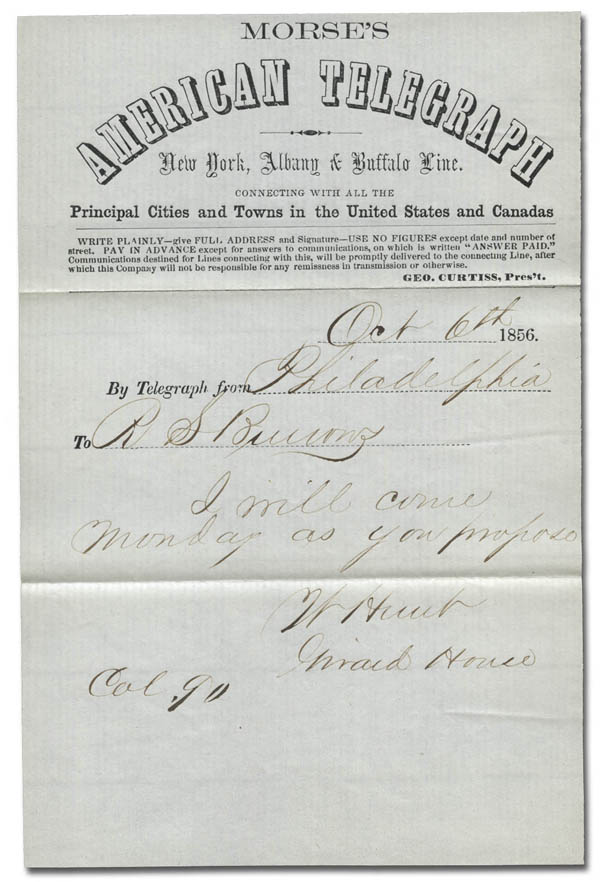 MORSE'S
AMERICAN TELEGRAPH
New York, Albany & Buffalo Line.
CONNECTING WITH ALL THE
Principal Cities and Towns in the United States and Canadas
WRITE PLAINLY—give FULL ADDRESS and Signature—USE NO FIGURES except date and number of
street. PAY IN ADVANCE except for answers to communications, on which is written "ANSWER PAID."
Communications destined for Lines connecting with this, will be promptly delivered to the connecting Line, after
which this Company will not be responsible for any remissness in transmission or otherwise.
GEO. CURTISS, Pres't.
Oct 6th 1856.
By Telegraph from Philadelphia
To R S Burrows
I will come
Monday as you propose
W Hunt
Girard House
Col 90